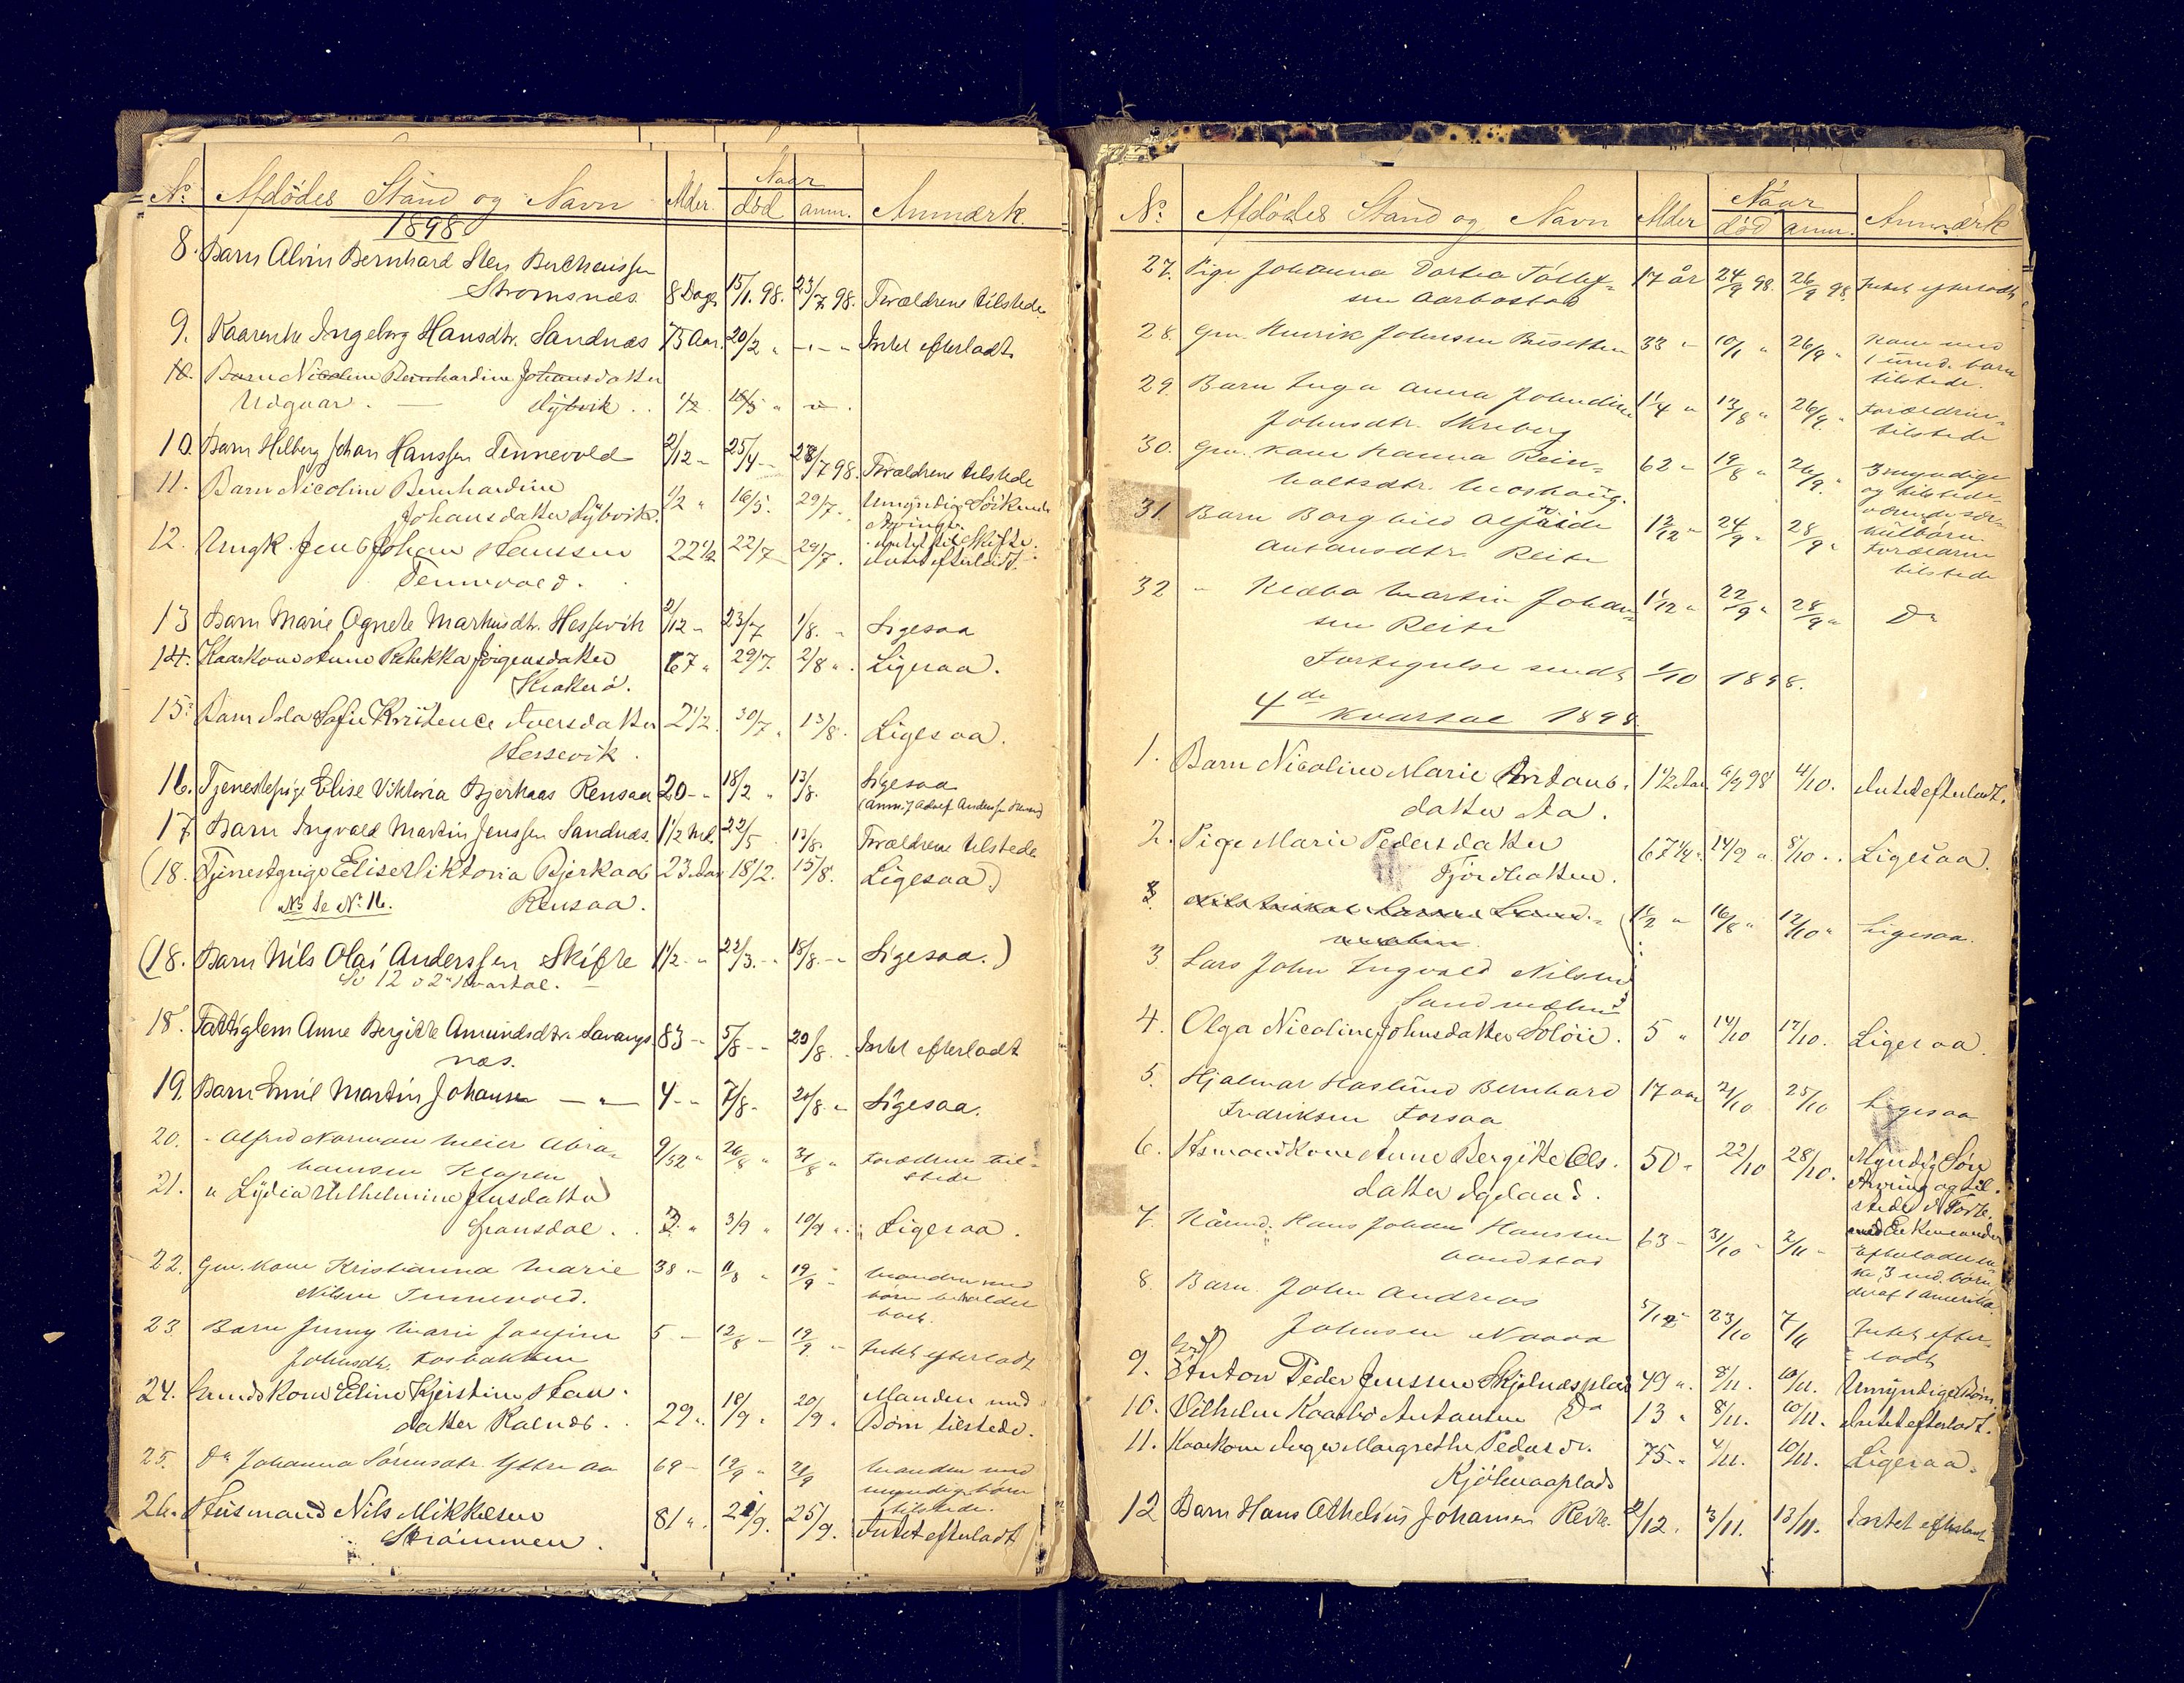 No. Afdödes Stand og Navn Alder. Naar död anm. Anmærk.
1898
8. Barn Alvin Bernhard Bertheussen
Strømsnæs 8 Dage 15/1. 98. 23/7 98. Forældrene tilstede
9. Kaarenke Ingeborg Hansdtr. Sandnæs 75 Aar. 20/2 " - " - " Intet efterladt
10. Barn Nicoline Bernhardine Johansdatter
Udgaar. — Dybvik. 1/2 16/5 " "
10. Barn Hilberg Johan Hanssen Tennevold 2/12 - 25/4 - 28/7 98. Forældrene tilstede
11. Barn Nicoline Bernhardine
Johansdatter Dybvik. 1/2 " 16/5. 29/7. Umyndige Söskende
Arvinger.
12. Ungk. Jens Johan Hanssen 22 1/2 22/7 29/7. Intet efterladt.
Tennevold.
13 Barn Marie Agnete Markusdtr. Hessevik 2/12 - 23/7 1/8. " Ligesaa
14. Kaarkone Anne Rebekka Jörgensdatter 67 " 29/7. 2/8 ". Ligesaa.
Krakerö.
15. Barn Ida Sofie Kristence Iversdatter 2 1/2. 30/7 " 13/8. Ligesaa.
Hessevik.
16. Tjenestepige Elise Viktoria Bjerkaas Rensaa 20 - " 18/2 " 13/8. Ligesaa
(Anm. Adolf Andersen
17 Barn Ingvald Martin Jenssen Sandnæs. 1 1/2 Md. 22/5 13/8. Forældrene tilstede
(18. Tjenestepige Elise Viktoria Bjerkaas 23 Aar 18/2. 15/8. Ligesaa)
Nb se No. 16. Rensaa.
(18. Barn Nils Olai Anderssen Skifte 1 1/2 - " 22/3. - " 18/8. - " Ligesaa.)
No 12 i 2 Kvartal.
18. Fattiglem Anne Bergitte Amundsdtr. Lavangs 83 - " 5/8 - - 20/8. Intet efterladt
næs.
19. Barn Emil Martin Johansen — " — 4 - " 7/8. 20/8. " Ligesaa.
20. - Alfred Norman Meier Abra-
hamsen Klopen 9/52 " 26/8 " 31/8 " Forældrene til-
stede
21. " Lydia Vilhelmine Jensdatter
Spansdal. 3/9 " 10/9 " Ligesaa.
22. Gm. kone Kristianna Marie 38 - 11/8 " 19/9 - Manden med
Nilsen Tennevold. börn beholder
boet.
23. Barn Jenny Marie Josefine 5 - 12/8 - 19/9. - Intet efterladt
Johnsdtr. Fosbakken
24. Kone Eline Kjerstine Han-
datter Ralnæs. 29 ". 18/9 ". 20/9 " Manden med
Börn tilstede.
25. Do Johanna Sörensdtr. Yttre Aa 69 - 19/9 " 21/9 Manden med
myndige börn
tilstede.
26. Husmand Nils Mikkelsen
Strømmen. 81 ". 21/9. 25/9. Intet efterladt
No. Afdödes Stand og Navn Alder Naar död anm. Anmærk
27. Pige Johanna Dortea Tollef-
sen Aarbostad 17 år 24/9 98. 26/9 98. Intet efterladt
28. Gm. Henrik Johnsen 33 - 10/1 " 26/9 " Kone med
1 umd. barn
tilstede.
29. Barn Inga Anna Johndine 1 1/4 " 13/8 " 26/9. " Forældrene
Johnsdtr. Skreberg tilstede
30. Gm. kone Hanna Rein- 62 - 19/8 " 26/9. 3 myndige
holtsdtr. Moshaug. og tilstede-
værende sær-
kulbörn
31. Barn Borghild Alfride 12/12 " 24/9 " 28/9 " Forældrene
Antonsdtr. Reite tilstede
32 " Hedba Martin Johan-
sen Reite 1 1/12 " 22/9 " 28/9 " Do
Fortegnelse sendt 1/10 1898.
4de Kvartal 1898
1. Barn Nicoline Marie Antons. 1 1/2 Aar 6/9 98 4/10. Intet efterladt.
datter Aa.
2. Pige Marie Pedersdatter 67 1/4 ". 14/9 ". 8/10 ". Ligesaa.
Fjordbotten.
3. 1 1/2 " 16/8 " 12/10 " Ligesaa.
3. Lars John Ingvald Nilsen
Sandmælen
4. Olga Nicoline Johnsdatter Solöie. 5 " 14/10 17/10. Ligesaa.
5. Hjalmar Haslund Bernhard 17 aar 21/10 25/10 Ligesaa
Fredriksen Forsaa
6. Husmandskone Anne Bergitte Ols. 50 - 22/10 28/10. Myndig Sön
datter Igeland. Arving og til-
stede
7. Kårmd. Hans Johan Hanssen 63 - 31/10 - 2/11 - Efterladen
3 md. börn,
deraf 1 Amerika.
8. Barn John Andreas
Johnsen 5/12 " 23/10 7/11 Intet efter-
ladt
9. Anton Peder Jenssen Skjelnæsplad 49 ". 8/11. 10/11. Umyndige Börn
10. Vilhelm Kaarbö Antonsen Do 13 " 8/11. 10/11. Intet efterladt.
11. Kaarkone Inger Margrethe Pedersdr. 75 - " 4/11. 10/11. Ligesaa.
Kjölmaaplads
12 Barn Hans Athelius Johansen Reite. 2/12. 3/11. 13/11. Intet efterladt